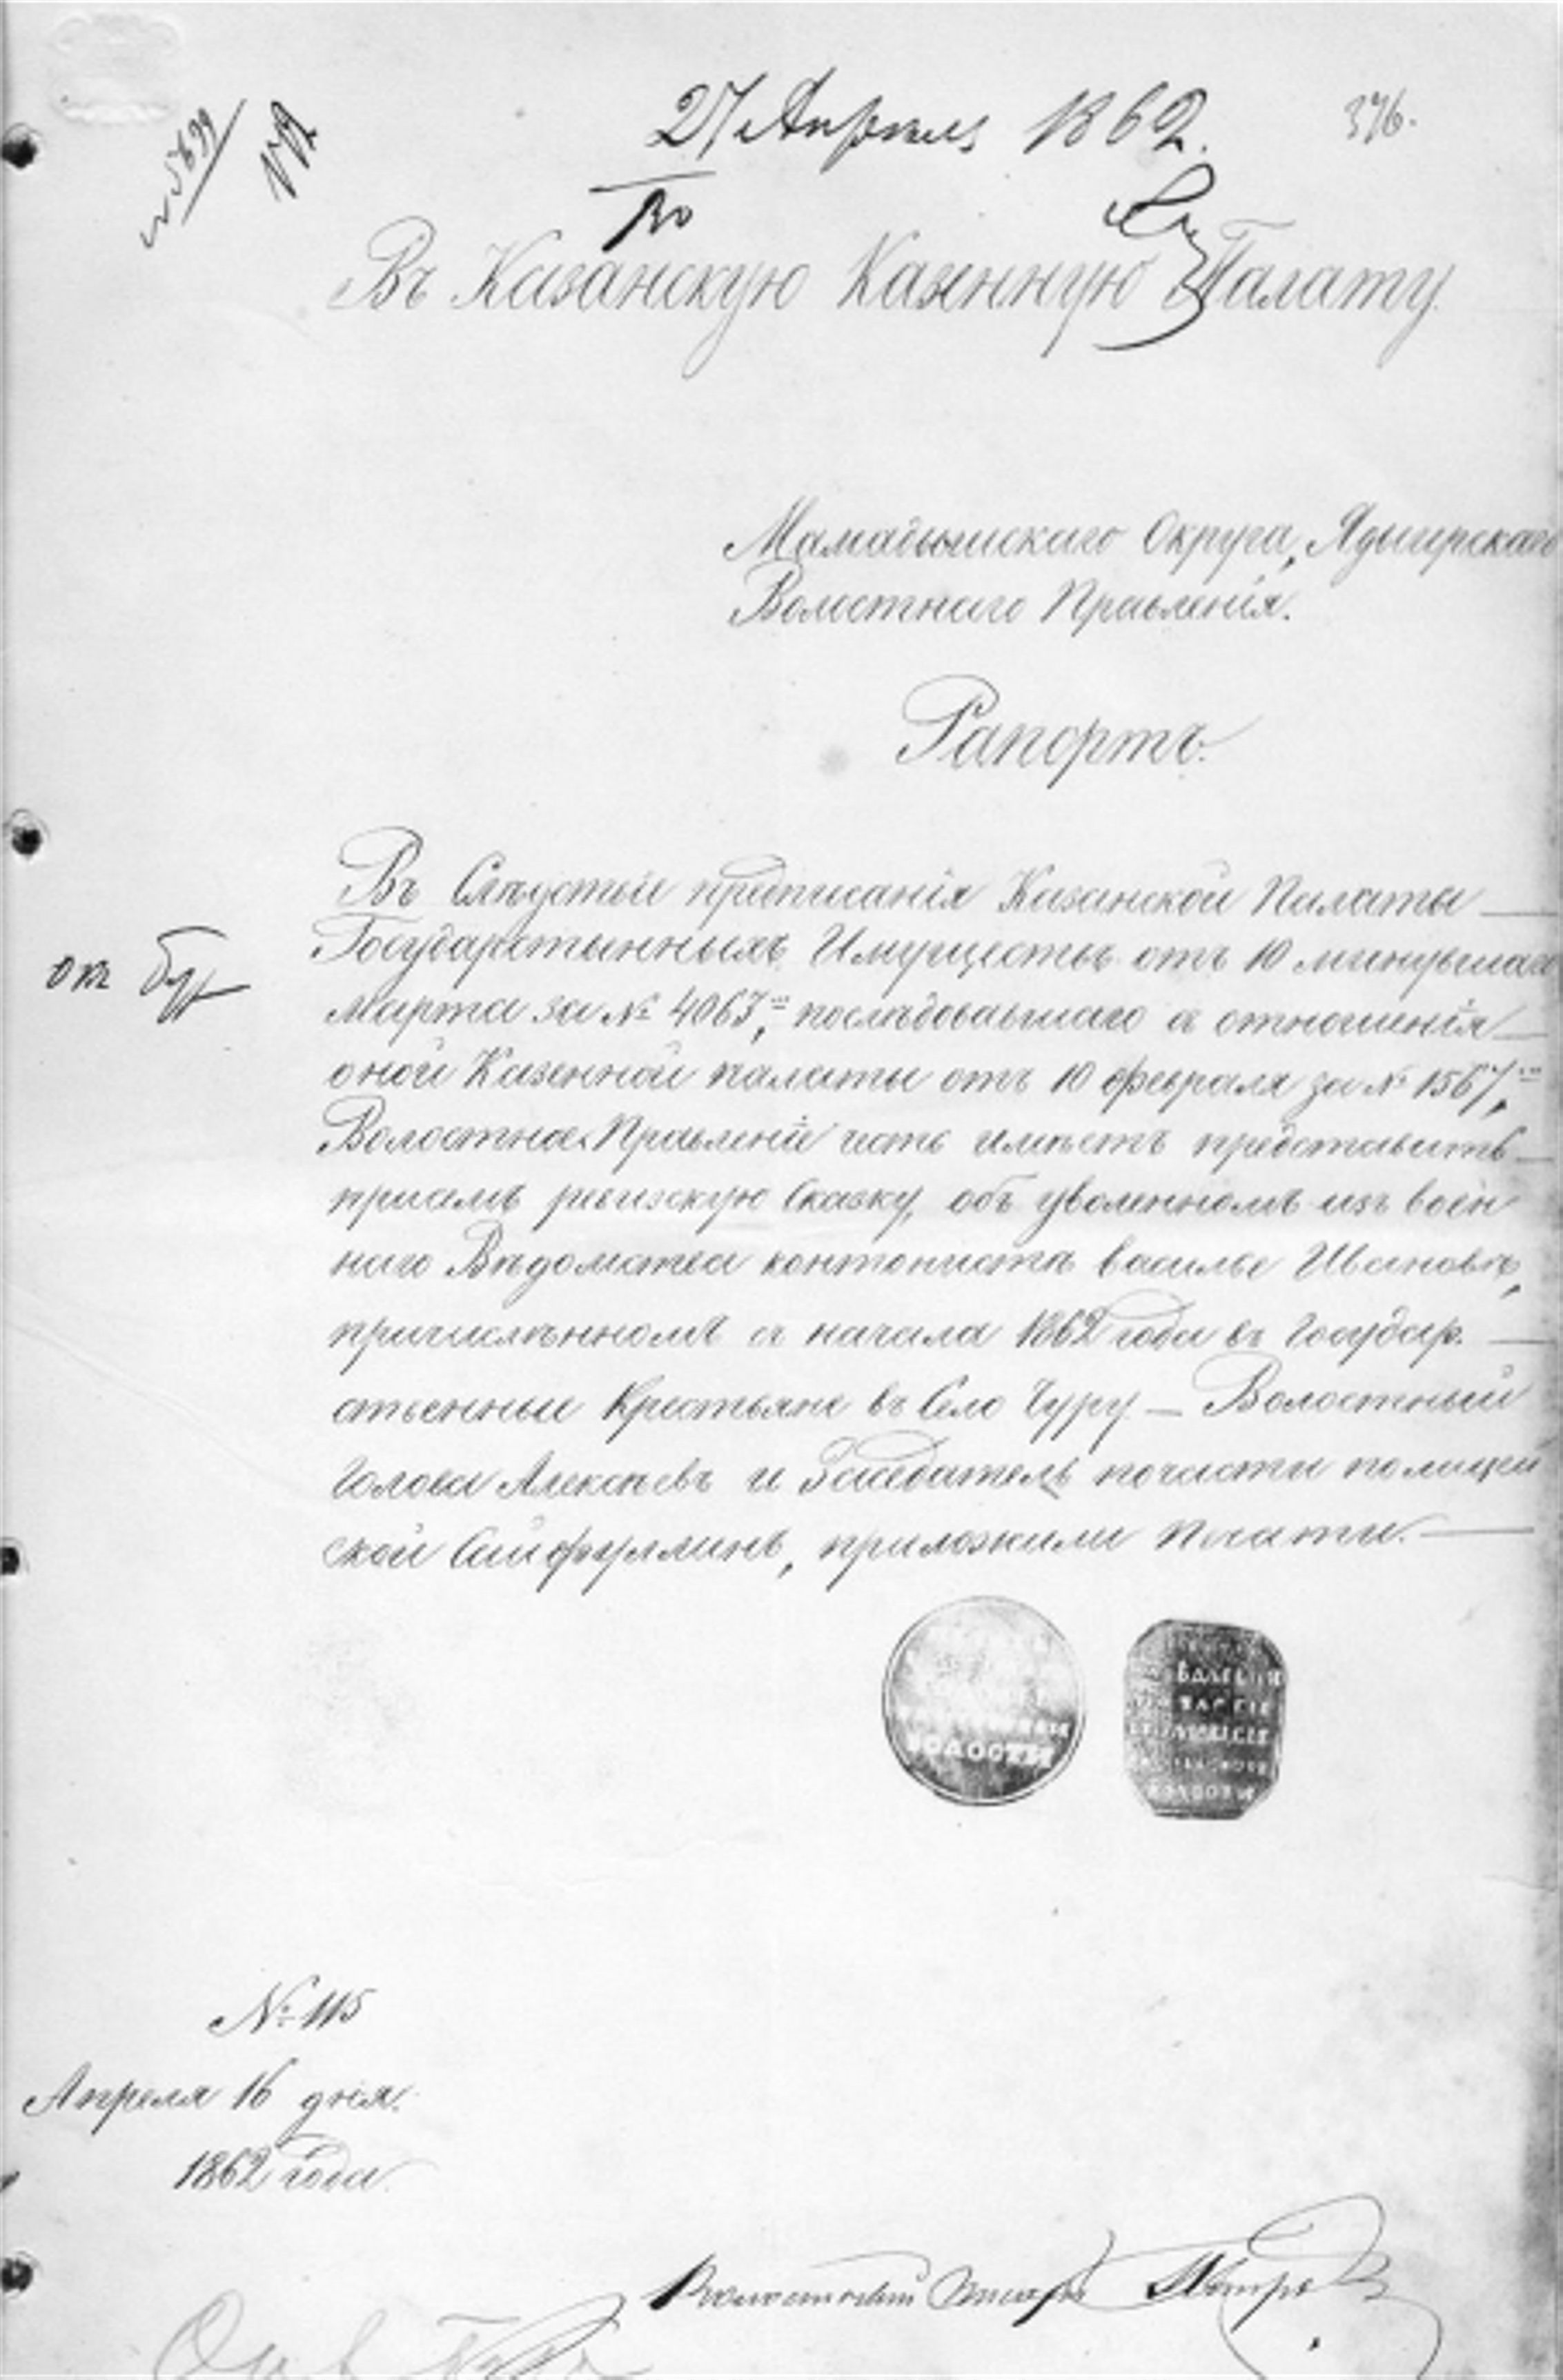 27 Апреля 1862.
376.
№ 5699
Въ Казанскую Казенную Палату.
Мамадышскаго Округа, Ядыгерскаго
Волостнаго Правленія.
Рапортъ.
Въ Следствіе предписанія Казанской Палаты
Государственныхъ Имуществъ отъ 10 минувшаго
марта за № 4063, последовавшаго съ отношенія
оной Казенной палаты отъ 10 февраля за № 1567,
Волостное Правленіе честь имеетъ представить
присемъ ревизскую Сказку, объ уволенномъ изъ воен
наго Ведомства контониста василье Ивановъ,
причисленномъ съ начала 1862 года въ Государ.
ственные Крестьяне въ Село Чуру — Волостный
Голова Алексеевъ и Заседатель почасти полицей
ской Сайфуллинъ, приложили Печати.
волости
№ 115
Апреля 16 дня.
1862 года.
Волостной Писарь